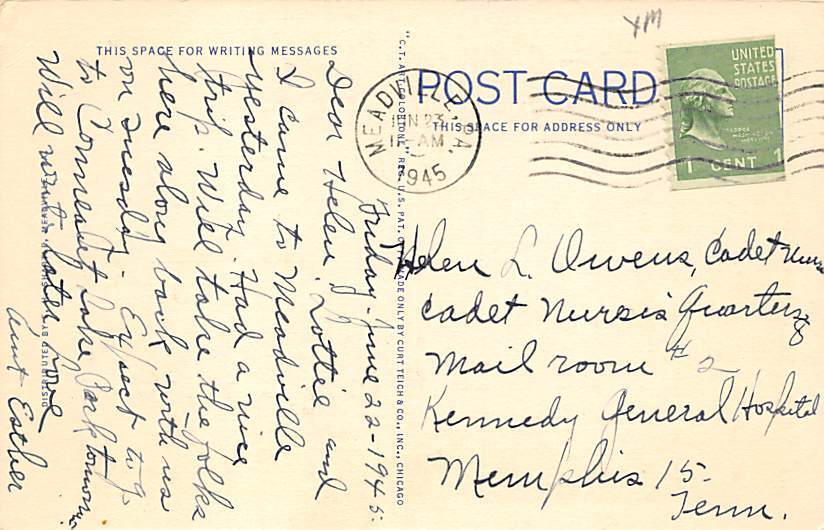 THIS SPACE FOR WRITING MESSAGES
Friday - June 22 - 1945.
Dear Helen, Lottie and
I came to Meadville
yesterday. Had a nice
trip. Will take the folks
here along back with us
on Tuesday. Expect to go
to Conneaut Lake Park tomorrow.
Will write later. Love
Aunt Esther
DISTRIBUTED BY
MEADVILLE,
"C.T. ART-COLORTONE" REG. U.S. PAT. OFF. MADE ONLY BY CURT TEICH & CO., INC., CHICAGO
POST CARD
THIS SPACE FOR ADDRESS ONLY
MEADVILLE, PA.
JUN 23
11-AM
1945
UNITED
STATES
POSTAGE
1 CENT 1
Helen L. Owens, Cadet Nurse
Cadet Nurses Quarters
Mail room #2
Kennedy General Hospital
Memphis 15-
Tenn.